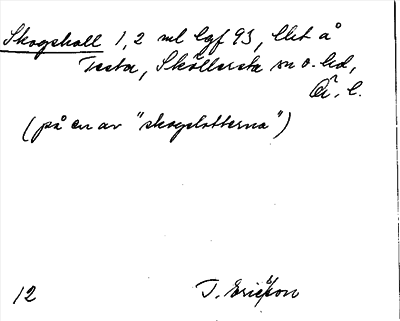 Skogshall 1, 2 ml lgf 93, Ust å
Testa, Sköllersta sn o. hd,
Ör. l.
(på en av "skogslotterna")
12 T. Ericsson